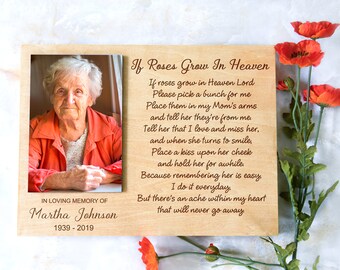 If Roses Grow In Heaven
If roses grow in Heaven Lord
Please pick a bunch for me
Place them in my Mom's arms
and tell her they're from me.
Tell her that I love and miss her,
and when she turns to smile,
Place a kiss upon her cheek
and hold her for awhile.
Because remembering her is easy,
I do it everyday,
But there's an ache within my heart
that will never go away.
IN LOVING MEMORY OF
Martha Johnson
1939 - 2019